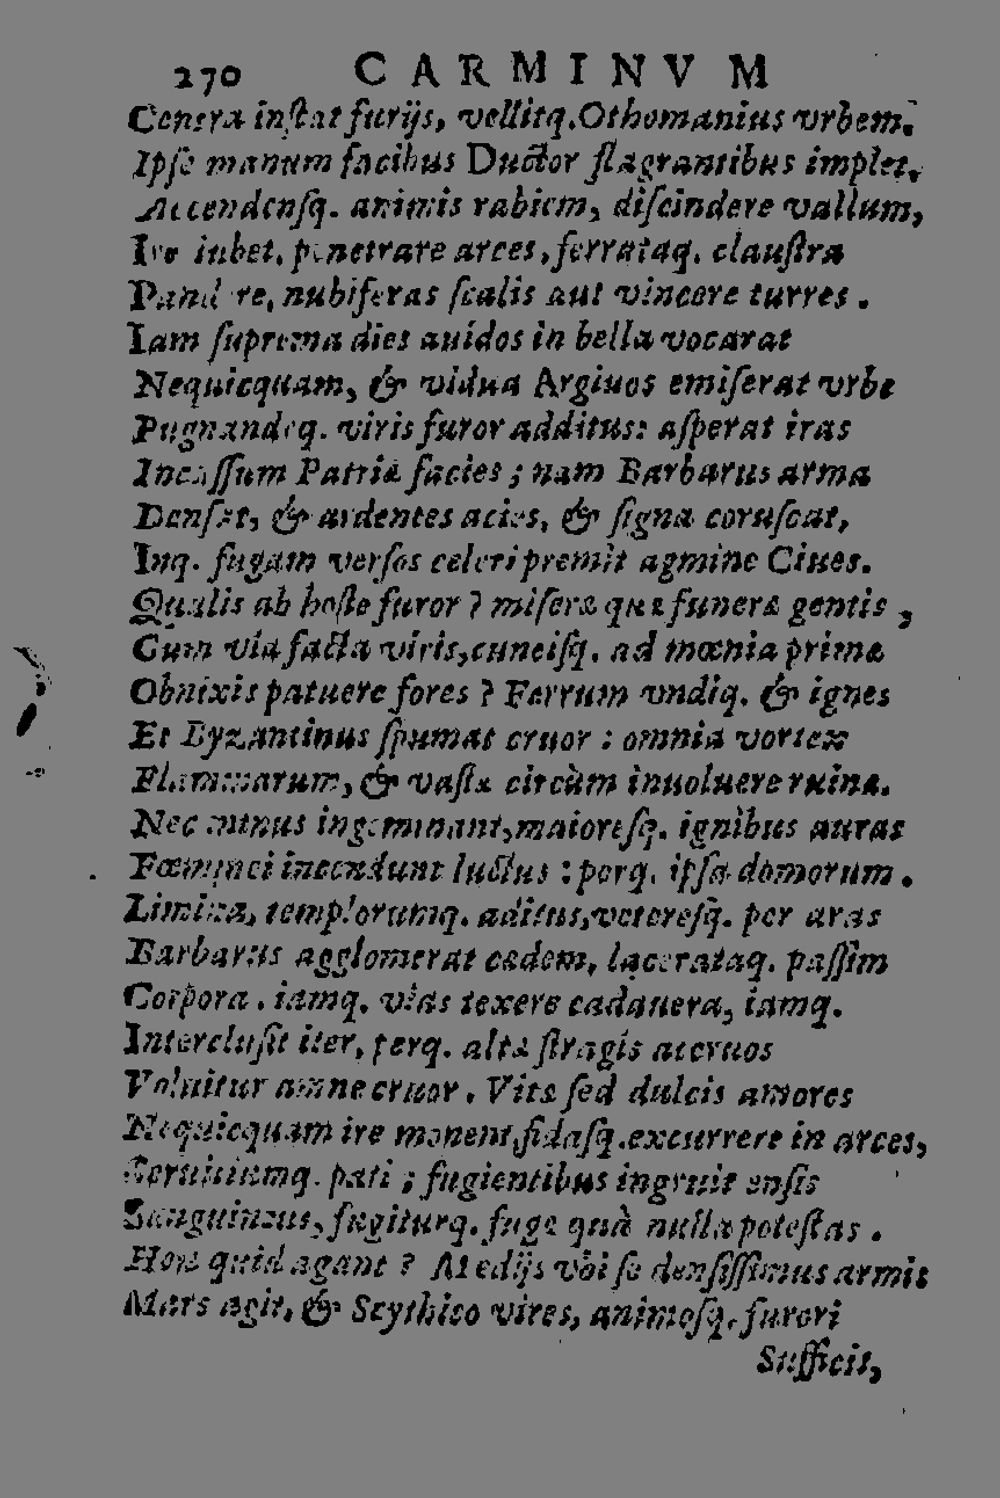 270 CARMINVM
Contra inſtat furijs, vellitq. Othomanius vrbem.
Ipſe manum facibus Ductor flagrantibus implet.
Accendenſq. animis rabiem, diſcindere vallum,
Ire iubet, penetrare arces, ferrataq. clauſtra
Pandere, nubiferas ſcalis aut vincere turres.
Iam ſuprema dies auidos in bella vocarat
Nequicquam, & vidua Argiuos emiſerat vrbe
Pugnandiq. viris furor additus: aſperat iras
Incaſſum Patriæ facies; nam Barbarus arma
Denſat, & ardentes acies, & ſigna coruſcat,
Inq. fugam verſos celeri premit agmine Ciues.
Qualis ab hoſte furor? miſeræ quæ funera gentis,
Cum via facta viris, cuneiſq. ad mœnia prima
Obnixis patuere fores? Ferrum vndiq. & ignes
Et Byzantinus ſpumat cruor: omnia vortex
Flammarum, & vaſtæ circùm inuoluere ruinæ.
Nec minus ingeminant, maioreſq. ignibus auras
Fœminei incendunt luctus: perq. ipſa domorum.
Limina, templorumq. aditus, vetereſq. per aras
Barbarus agglomerat cædem, lacerataq. paſſim
Corpora. iamq. vias texere cadauera, iamq.
Intercluſit iter, perq. altæ ſtragis aceruos
Voluitur amne cruor. Vitæ ſed dulcis amores
Nequicquam ire monent, fidaſq. excurrere in arces,
Seruitiumq. pati; fugientibus ingruit enſis
Sanguineus, fugiturq. fugæ quà nulla poteſtas.
Heu quid agant? Medijs vbi ſe denſiſſimus armis
Mars agit, & Scythico vires, animoſq. furori
Sufficit,